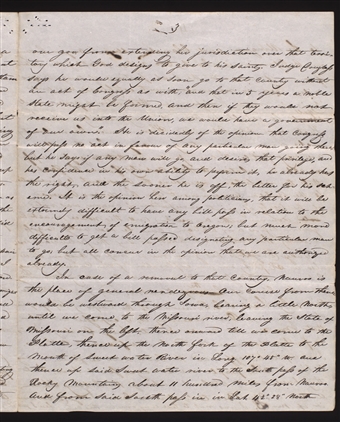 3
one you from extending his jurisdiction over that terri-
tory which God designs to give to his saints. Judge Douglass
says he would equally as soon go to that country without
an act of Congress as with, "and that in 5 years a noble
State might be formed, and then if they would not
receive us into the Union, we would have a government
of our own." He is decidedly of the opinion that Congress
will pass no act in favor of any particular man going there
but he says if any man will go and desires that privilege, and
has confidence in his own ability to perform it, he already has
the right, and the sooner he is off the better for his sch-
eme. It is the opinion here among politicians, that it will be
extremely difficult to have any bill pass in relation to the
encouragement of emigration to Oregon, but much more
difficult to get a bill passed designating any particular man
to go, but all concur in the opinion that we are authorized
already.
In case of a removal to that Country, Nauvoo is
the place of general rendezvous. Our course from thence
would be westward through Iowa, bearing a little North,
until we come to the Missouri river, leaving the State of
Missouri on the left, thence onward till we come to the
Platte, thence up the North fork of the Platte to the
Mouth of Sweet water River in Long 107° 45" W. and
thence up said Sweet water river to the South pass of the
Rocky Mountains about 11 hundred miles from Nauvoo
and from said South pass in Lat 42° 28" North